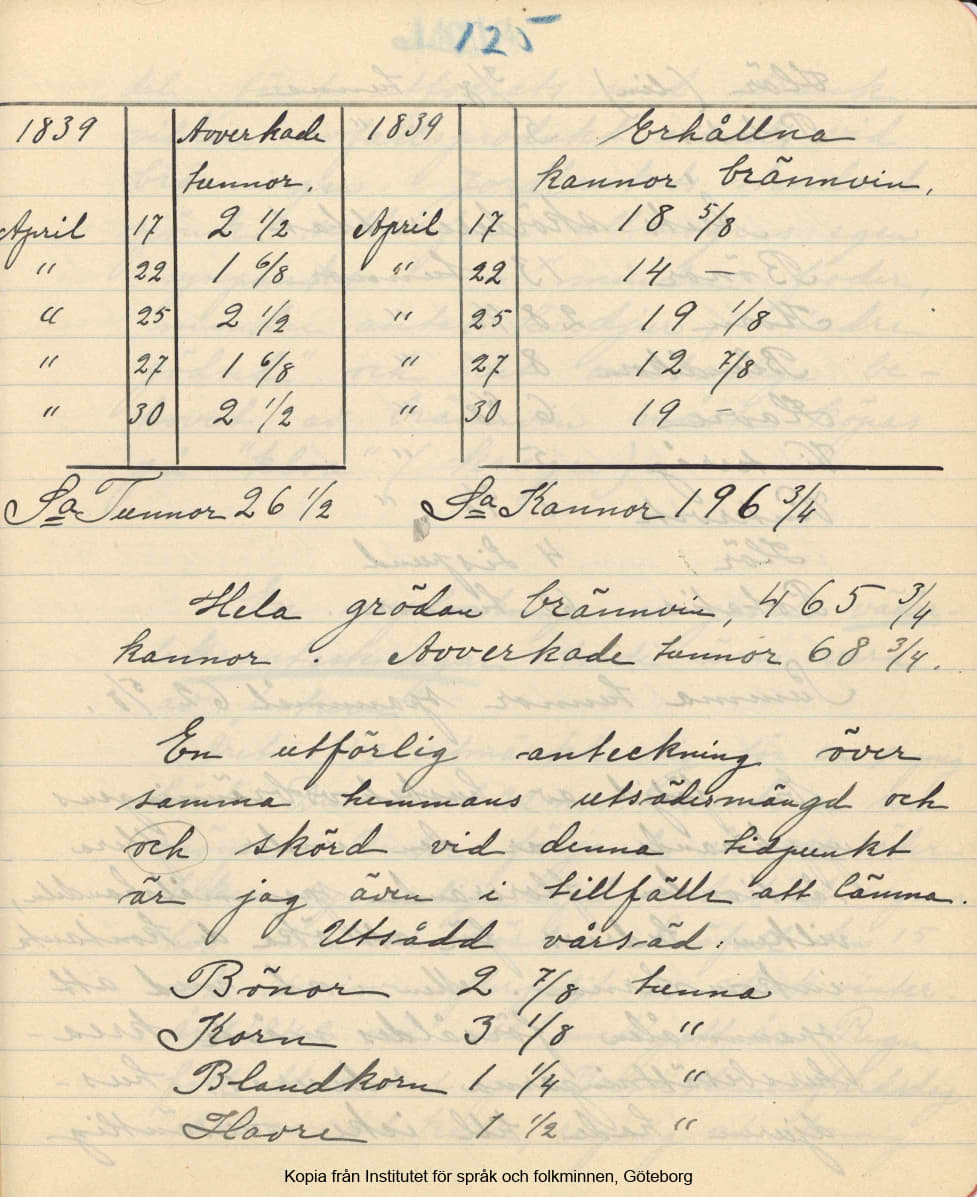 125
1839 Avverkade 1839 Erhållna
tunnor. kannor brännvin.
April 17 2 1/2 April 17 18 5/8
" 22 1 6/8 " 22 14 —
" 25 2 1/2 " 25 19 1/8
" 27 1 6/8 " 27 12 7/8
" 30 2 1/2 " 30 19 –
Sa Tunnor 26 1/2 Sa Kannor 196 3/4
Hela grödan brännvin, 465 3/4
kannor. Avverkade tunnor 68 3/4.
En utförlig anteckning över
samma hemmans utsädesmängd och
och skörd vid denna tidpunkt
är jag även i tillfälle att lämna.
Utsådd vårsäd:
Bönor 2 7/8 tunna
Korn 3 1/8 "
Blandkorn 1 1/4 "
Havre 1 1/2 "
Kopia från Institutet för språk och folkminnen, Göteborg